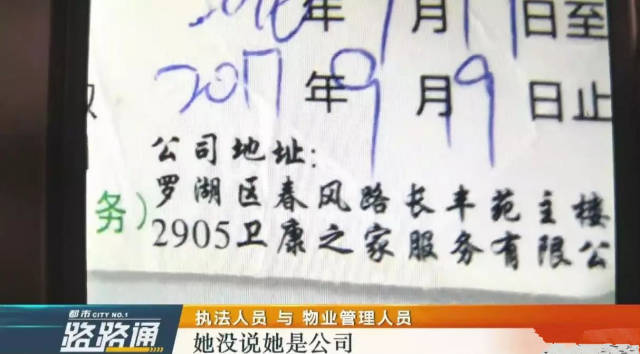 年9月19日至
2017年9月9日止
公司地址:
罗湖区春风路长丰苑主楼
务) 2905卫康之家服务有限公
都市 CITY NO.1
路路通
执法人员 与 物业管理人员
她没说她是公司